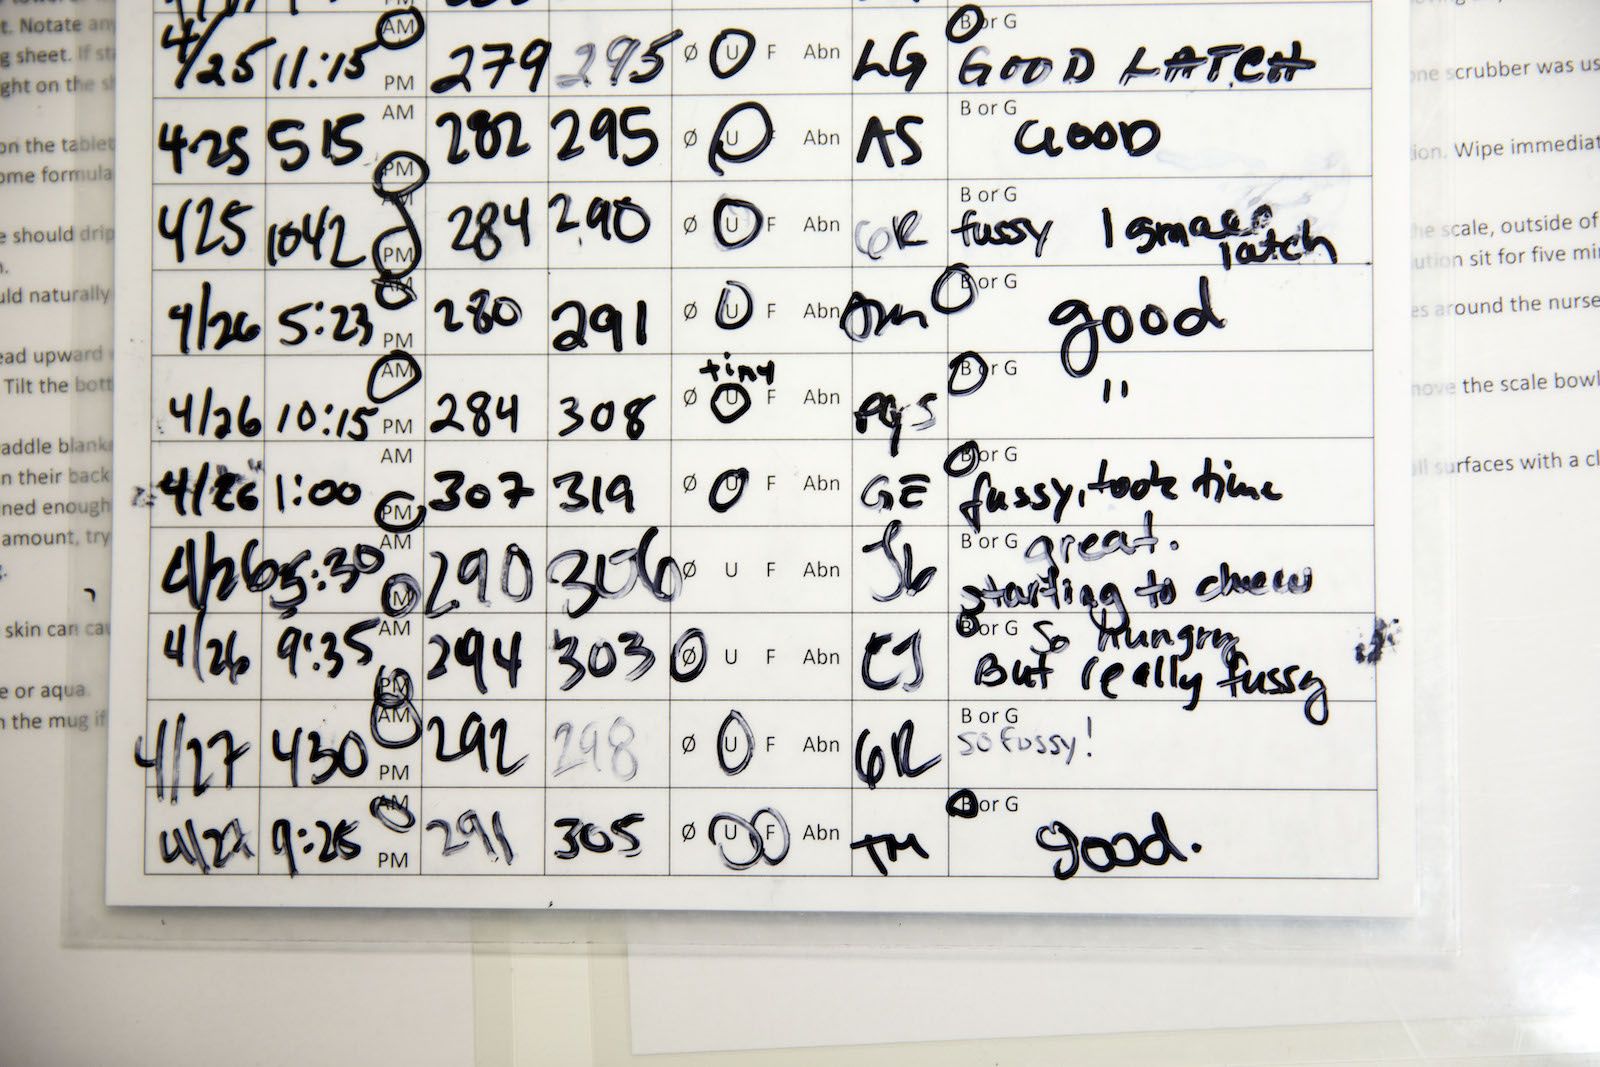 t. Notate any
g sheet. If st
ght on the s
on the tablet
ome formula
e should drip
uld naturally
ead upward
Tilt the bott
addle blank
n their back
ned enough
amount, try
skin can cau
e or aqua.
n the mug if
AM B or G
4/25 11:15 PM 279 295 Ø U F Abn LG GOOD LATCH
AM B or G
4-25 515 PM 282 295 Ø U F Abn AS GOOD
AM B or G
4/25 1042 PM 284 290 Ø U F Abn GR fussy 1 small latch
AM B or G
4/26 5:23 PM 280 291 Ø U F Abn good
AM tiny B or G
4/26 10:15 PM 284 308 Ø U F Abn "
AM B or G
4/26 1:00 PM 307 319 Ø U F Abn GE fussy, took time
AM B or G great.
4/26 5:30 PM 290 306 Ø U F Abn starting to chew
AM B or G So hungry
4/26 9:35 PM 294 303 Ø U F Abn CJ But really fussy
AM B or G
4/27 430 PM 292 298 Ø U F Abn GR so fussy!
AM B or G
4/27 9:25 PM 291 305 Ø U F Abn TM good.
one scrubber was us
ion. Wipe immediat
he scale, outside of
ution sit for five mi
es around the nurse
move the scale bowl
ll surfaces with a cl